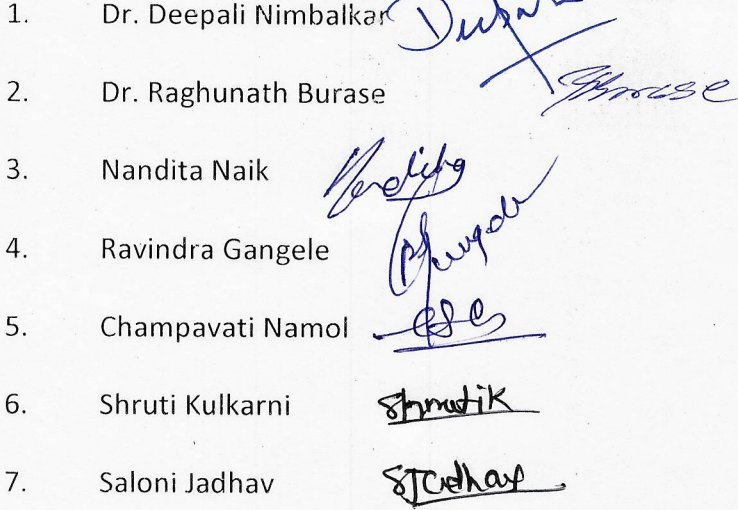 1. Dr. Deepali Nimbalkar
2. Dr. Raghunath Burase
3. Nandita Naik
4. Ravindra Gangele
5. Champavati Namol
6. Shruti Kulkarni Shrutik
7. Saloni Jadhav SJadhav